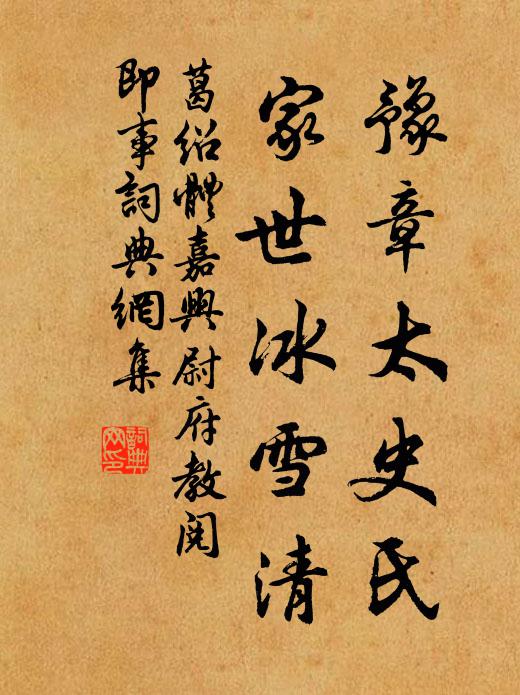 豫章太史氏
家世冰雪清
葛绍體嘉興尉府教閱
即事詞典網集
詞典網印